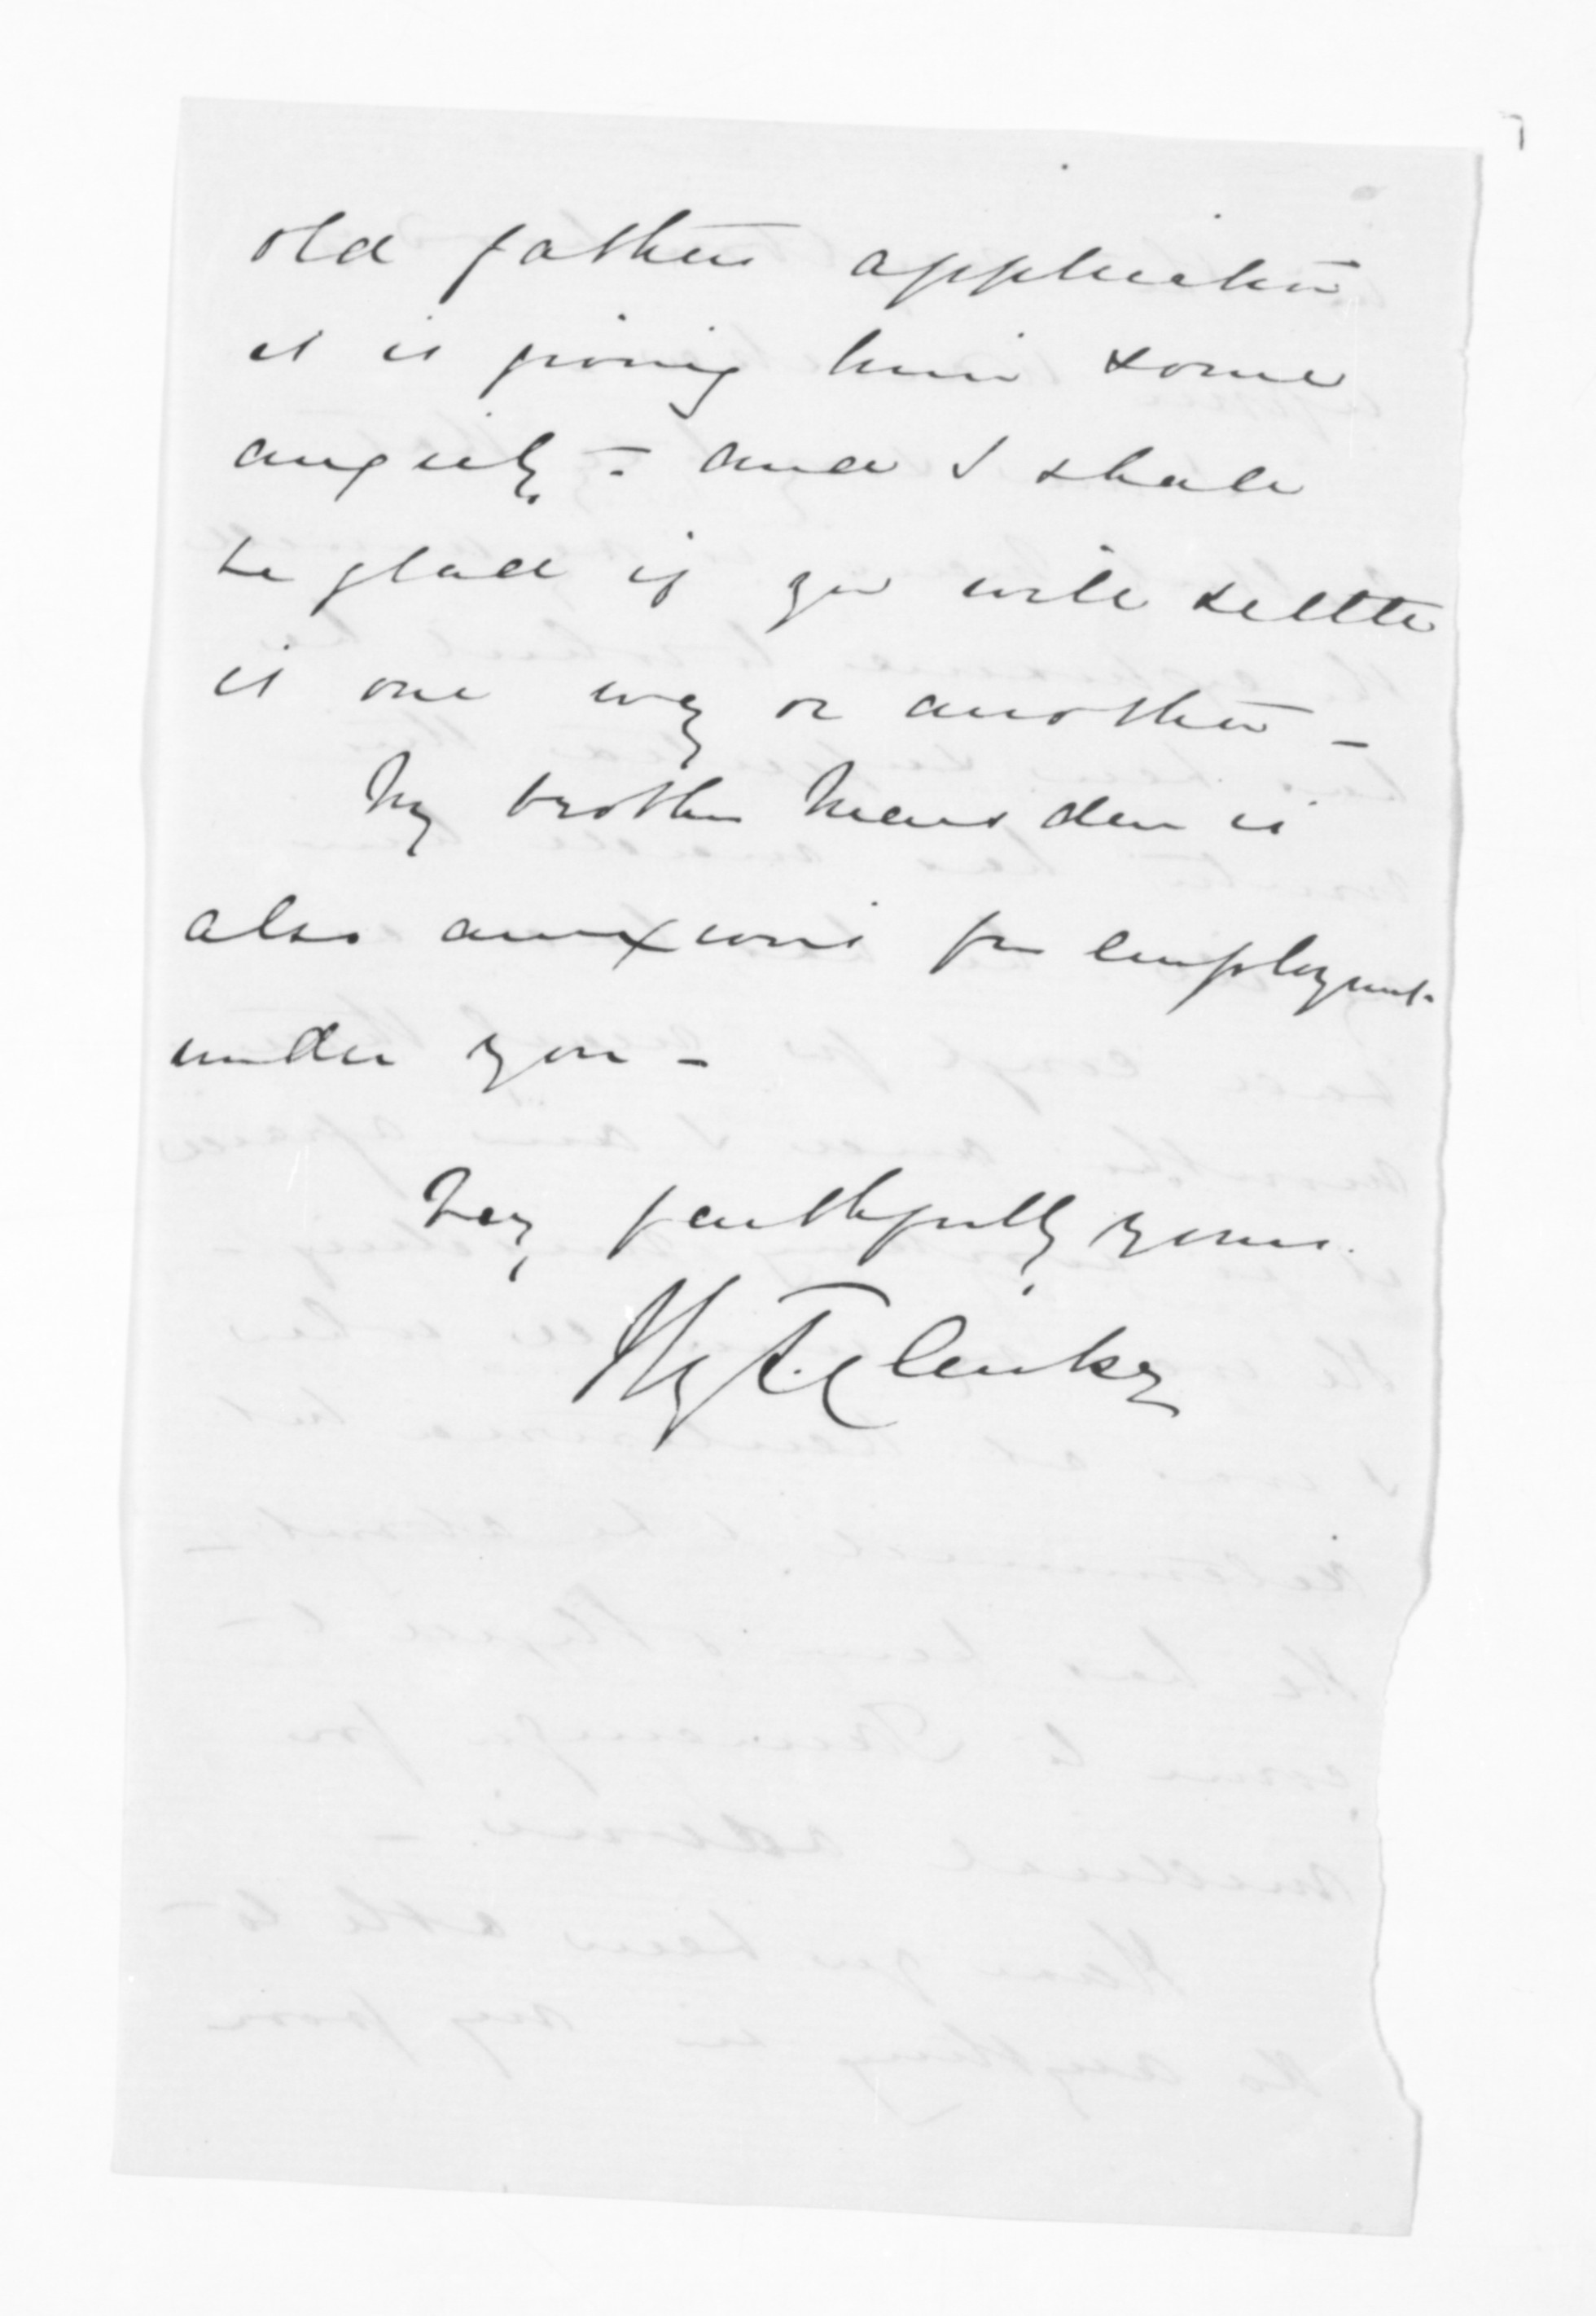 old father's application
it is giving him some
anxiety - and I shall
be glad if you will settle
it one way or another -
My brother Marsden is
also anxious for employment
under you -
Very faithfully yours
Hy T. Clarke